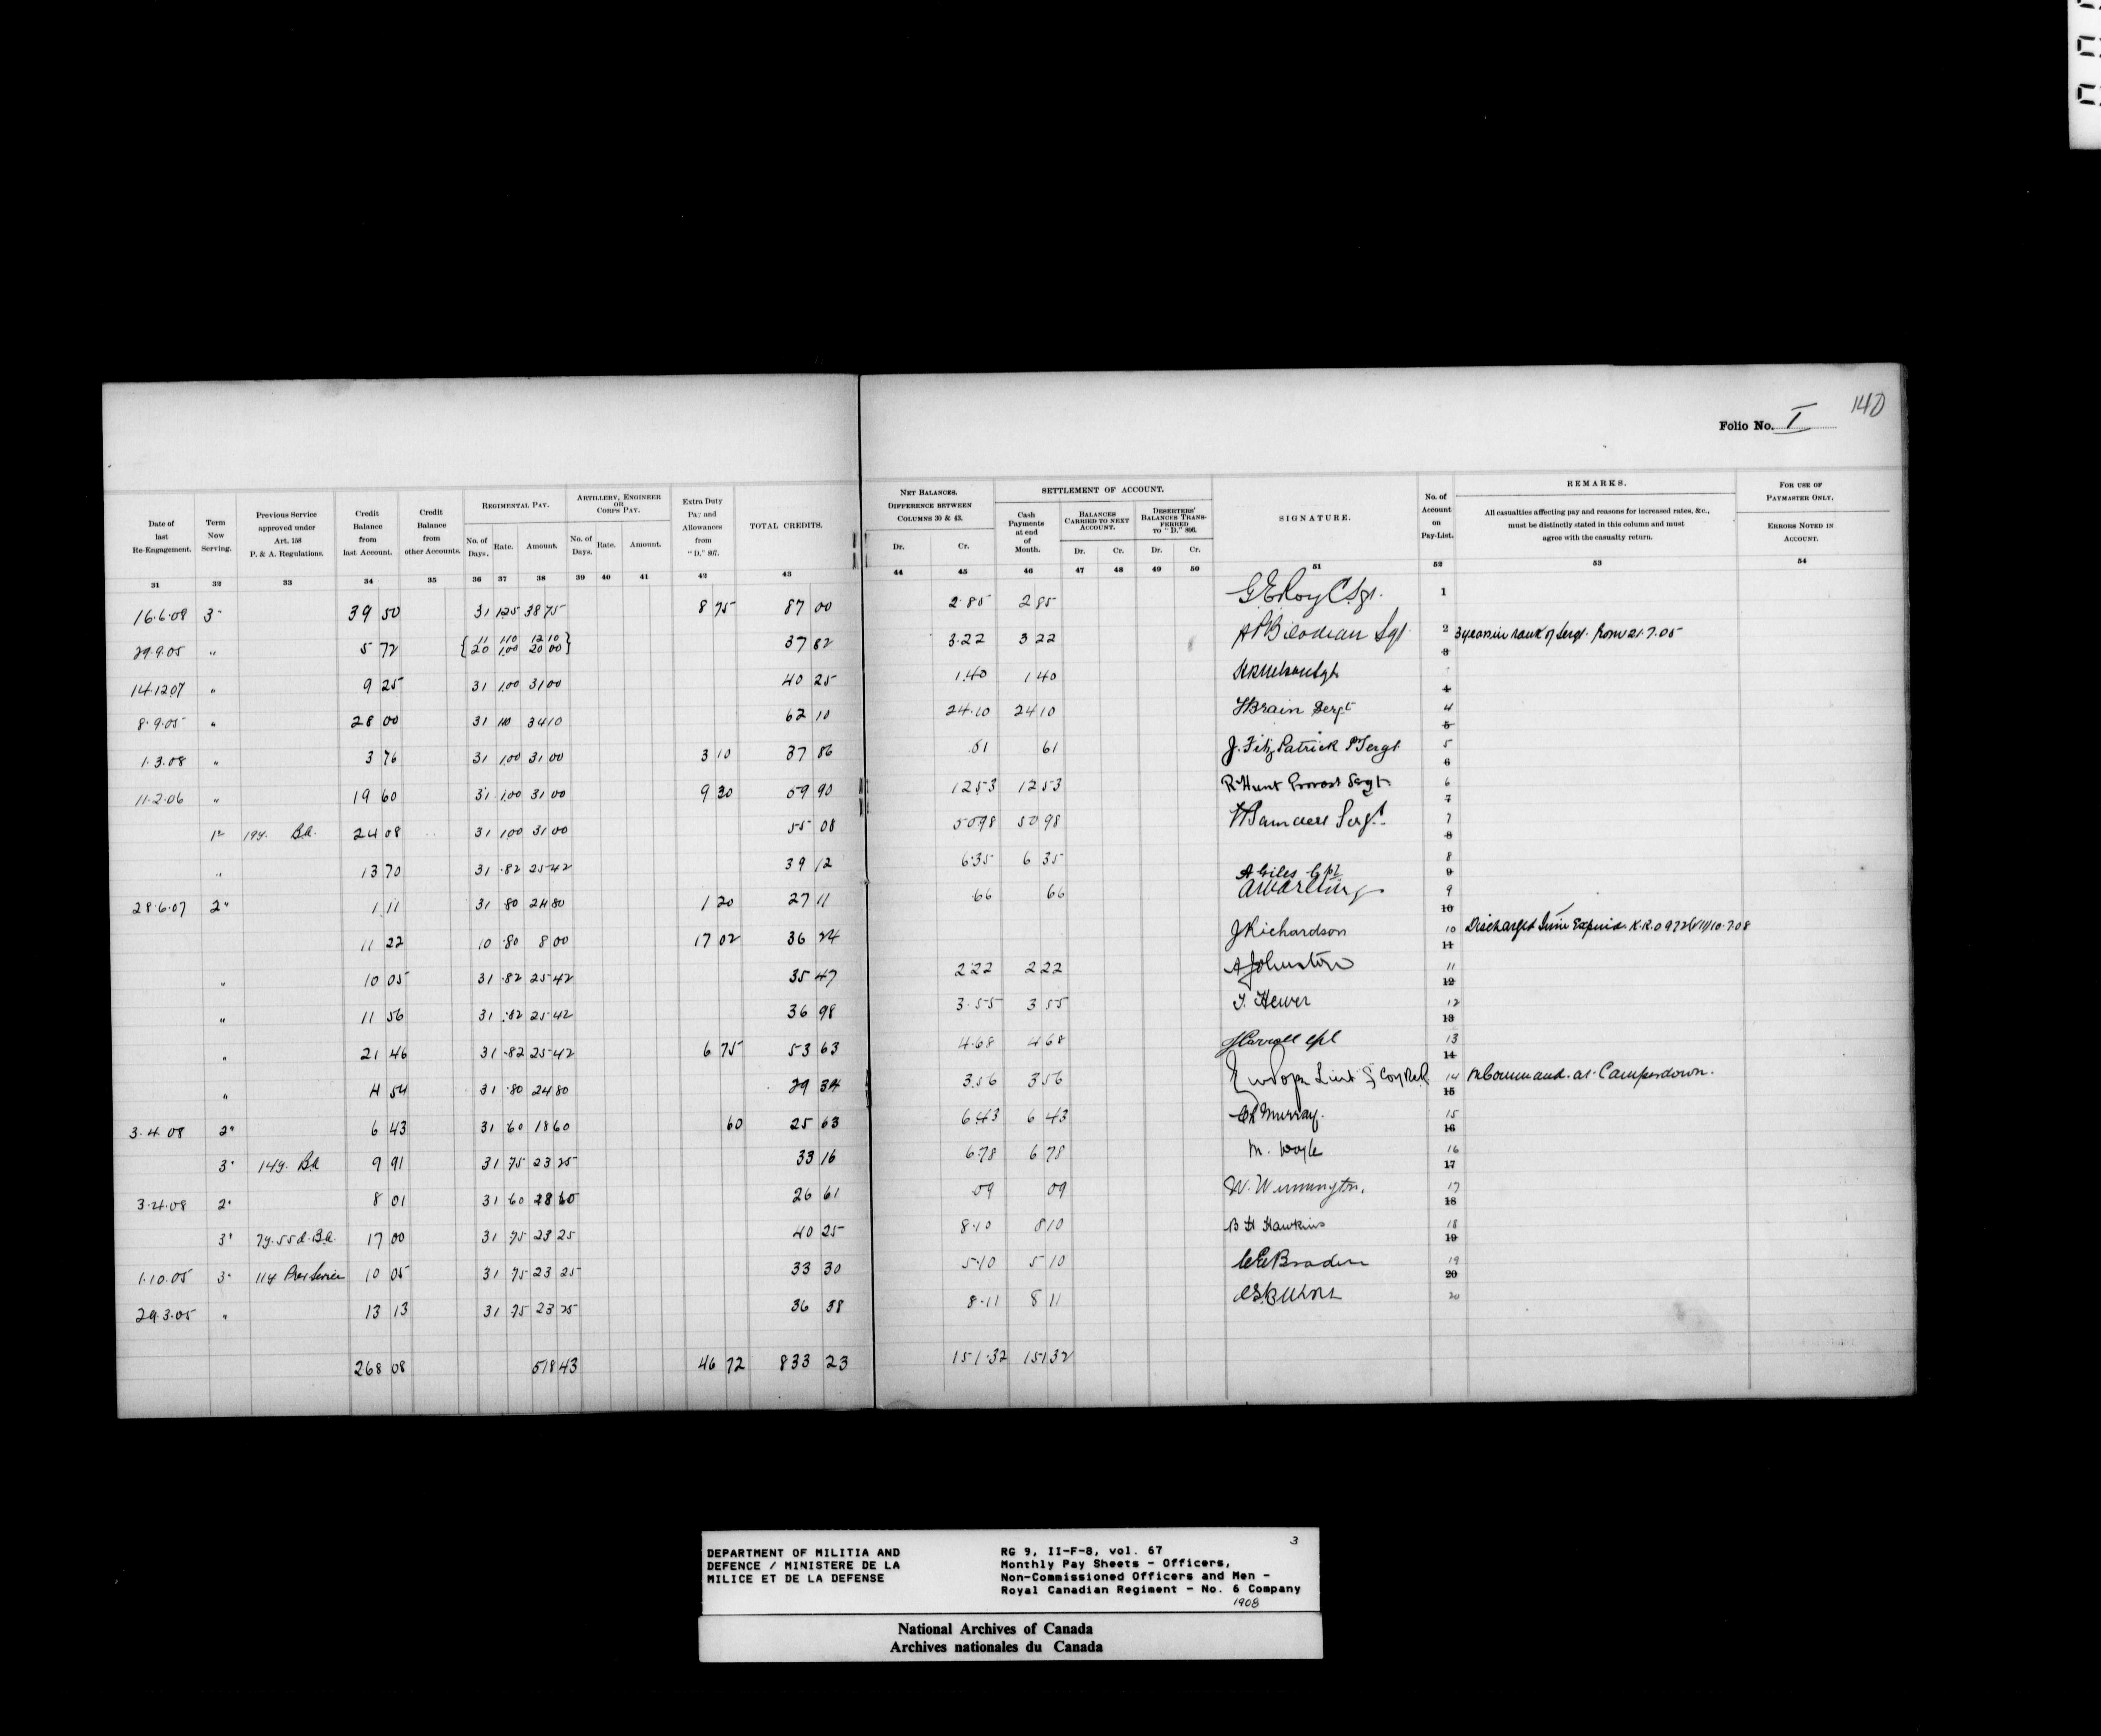 140
Folio No. I
Date of last Re-Engagement. Term Now Serving. Previous Service approved under Art. 158 P. & A. Regulations. Credit Balance from last Account. Credit Balance from other Accounts. REGIMENTAL PAY. No. of Days. Rate. Amount. ARTILLERY, ENGINEER OR CORPS PAY. No. of Days. Rate. Amount. Extra Duty Pay and Allowances from "D." 807. TOTAL CREDITS. NET BALANCES. DIFFERENCE BETWEEN COLUMNS 30 & 43. Dr. Cr. SETTLEMENT OF ACCOUNT. Cash Payments at end of Month. BALANCES CARRIED TO NEXT ACCOUNT. Dr. Cr. DESERTERS' BALANCES TRANSFERRED TO "D." 806. Dr. Cr. SIGNATURE. No. of Account on Pay-List. REMARKS. All casualties affecting pay and reasons for increased rates, &c., must be distinctly stated in this column and must agree with the casualty return. FOR USE OF PAYMASTER ONLY. ERRORS NOTED IN ACCOUNT.
31 32 33 34 35 36 37 38 39 40 41 42 43 44 45 46 47 48 49 50 51 52 53 54
16.6.08 3" 39 50 31 1.25 38 75 8 75 87 00 2.85 2 85 G E Roy C Sgt. 1
29.9.05 " 5 72 { 11 1.10 12 10 20 1.00 20 00 } 37 82 3.22 3 22 A P Bilodeau Sgt. 2 3 years in rank of Sergt. from 21.7.05
14.12.07 " 9 25 31 1.00 31 00 40 25 1.40 1 40 3
8.9.05 " 28 00 31 1.10 34 10 62 10 24.10 24 10 H Brain Sergt 4 4
1.3.08 " 3 76 31 1.00 31 00 3 10 37 86 .61 61 J. Fitz Patrick P Sergt. 5 5
11.2.06 " 19 60 31 1.00 31 00 9 30 59 90 12 53 12 53 R Hunt Provost Sergt 6 6
1" 19y. Ba. 24 08 31 1.00 31 00 55 08 50 98 50 98 Saunders Sergt. 7 7
" 13 70 31 .82 25 42 39 12 6.35 6 35 A Giles Cpl 8 8
28.6.07 2" 1 11 31 80 24 80 1 20 27 11 .66 66 A Warling 9 9
11 22 10 .80 8 00 17 02 36 24 J Richardson 10 10 Discharged Time Expired. K.R.O 972 (VII) 10.7.08
" 10 05 31 .82 25 42 35 47 2 22 2 22 A Johnston 11 11
" 11 56 31 .82 25 42 36 98 3.55 3 55 T. Hewer 12 12
" 21 46 31 .82 25 42 6 75 53 63 4.68 4 68 J Carroll Cpl 13 13
" 4 54 31 .80 24 80 29 34 3.56 3 56 14 14 In Command at Camperdown.
3.4.08 2" 6 43 31 60 18 60 60 25 63 6 43 6 43 Murray. 15 15
3" 14y. Ba 9 91 31 75 23 25 33 16 6.78 6 78 M. Doyle 16 16
3.4.08 2" 8 01 31 60 18 60 26 61 09 09 W. Wennington. 17 17
3" 7y. 55d. Ba. 17 00 31 75 23 25 40 25 8.10 8 10 B H Hawkins 18 18
1.10.05 3" 11y Prev Service 10 05 31 75 23 25 33 30 5.10 5 10 C E Braden 19 19
29.3.05 " 13 13 31 75 23 25 36 38 8.11 8 11 20 20
268 08 518 43 46 72 833 23 151.32 151 32
3
DEPARTMENT OF MILITIA AND
DEFENCE / MINISTERE DE LA
MILICE ET DE LA DEFENSE
RG 9, II-F-8, vol. 67
Monthly Pay Sheets - Officers,
Non-Commissioned Officers and Men -
Royal Canadian Regiment - No. 6 Company
1908
National Archives of Canada
Archives nationales du Canada